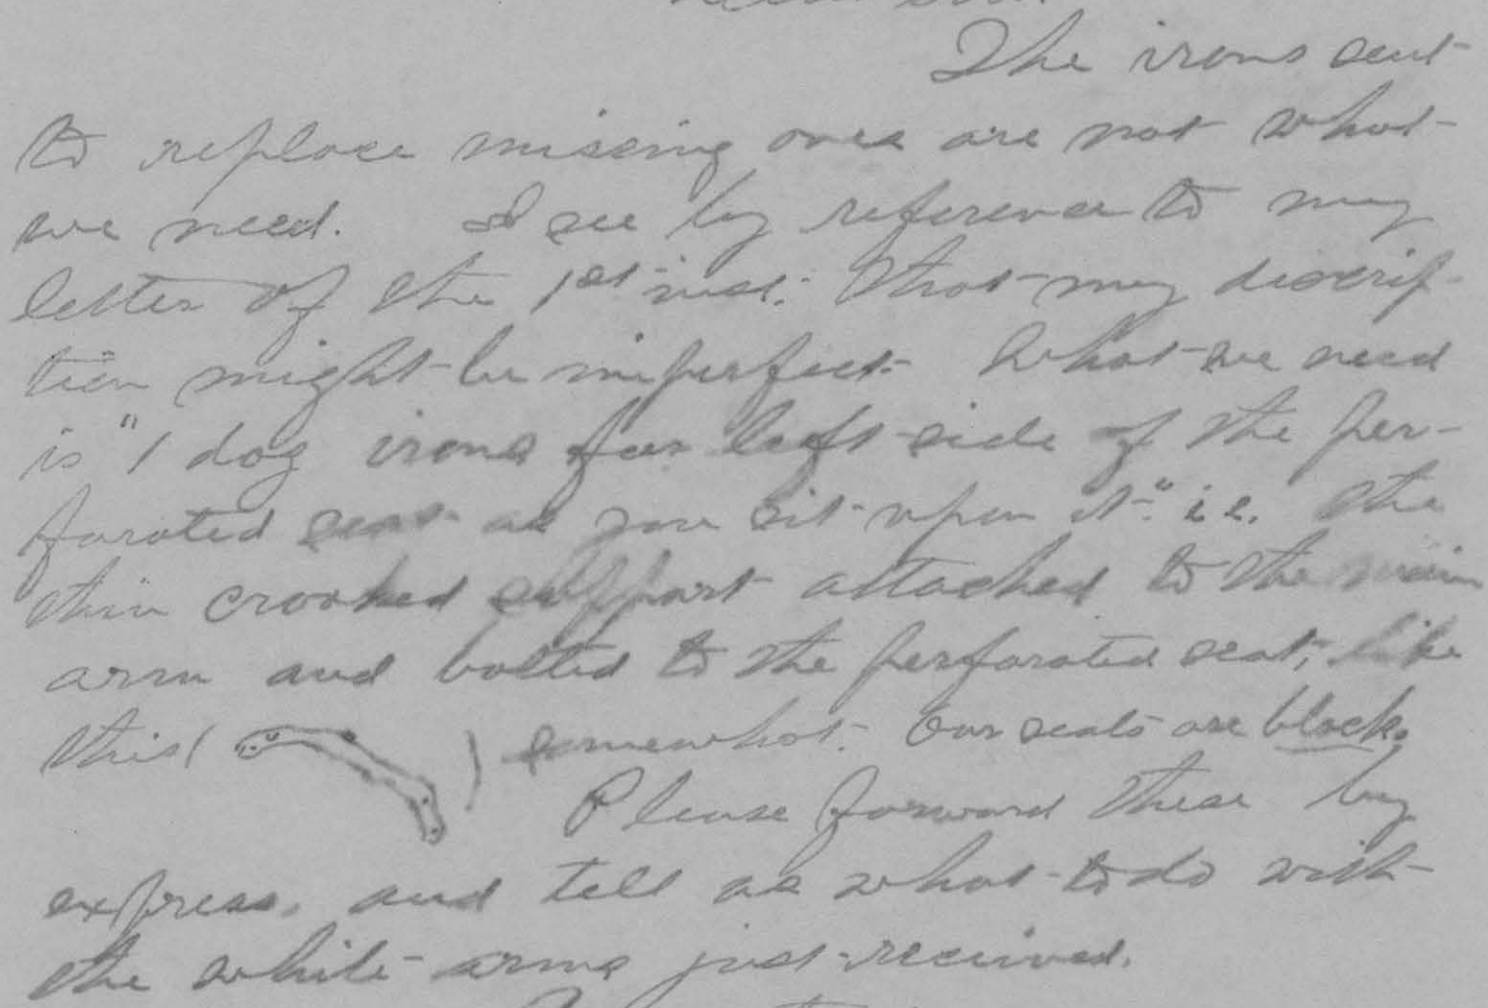 Dear Sir:
The irons sent
to replace missing ones are not what
we need. I see by reference to my
letter of the 1st inst. that my descrip-
tion might be imperfect. What we need
is "1 dog irons for left side of the per-
forated seat as you sit upon it." i.e. the
thin crooked support attached to the main
arm and bolted to the perforated seat, like
this ( ) somewhat. Our seats are black.
Please forward these by
express, and tell us what to do with
the white arms just received.